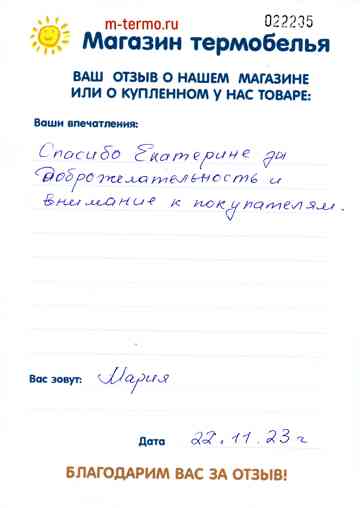 m-termo.ru
022235
Магазин термобелья
ВАШ ОТЗЫВ О НАШЕМ МАГАЗИНЕ
ИЛИ О КУПЛЕННОМ У НАС ТОВАРЕ:
Ваши впечатления:
Спасибо Екатерине за
доброжелательность и
внимание к покупателям.
Вас зовут: Мария
Дата 22.11.23 г
БЛАГОДАРИМ ВАС ЗА ОТЗЫВ!